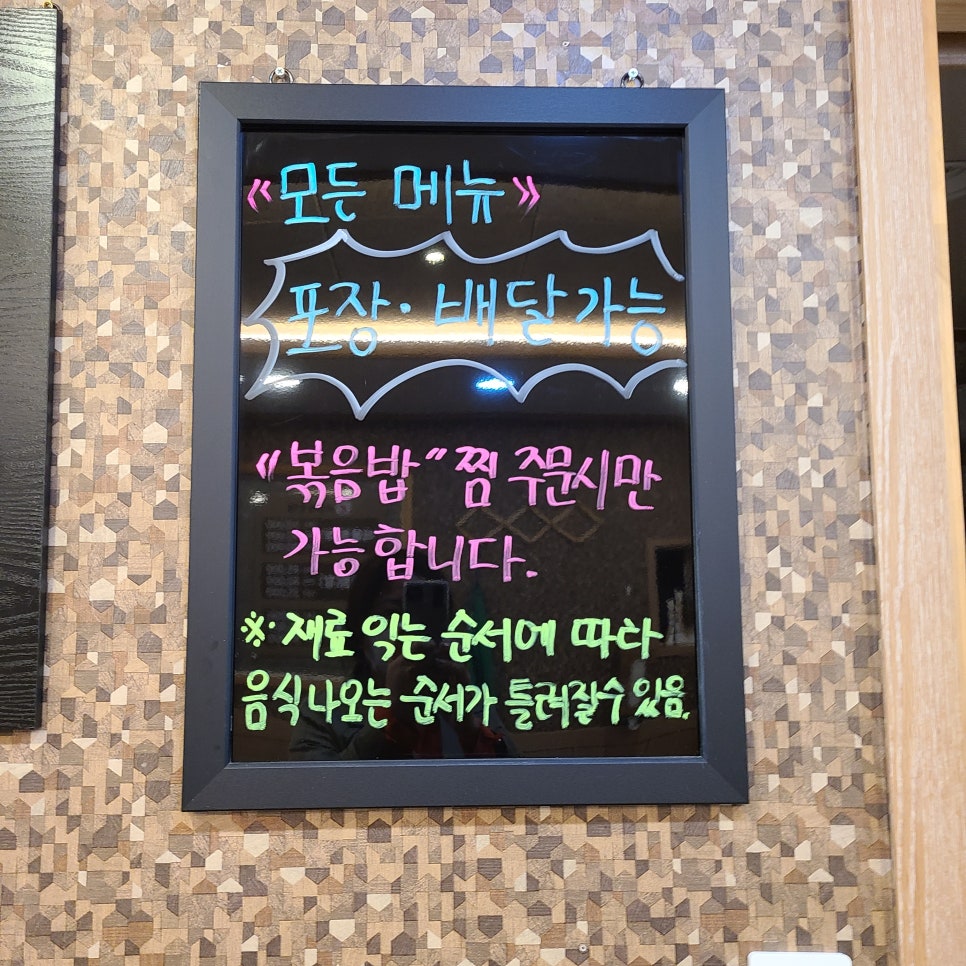 《모든 메뉴》
포장·배달가능
《볶음밥"찜 주문시만
가능합니다.
※ 재료 익는 순서에 따라
음식나오는 순서가 틀려질수 있음.